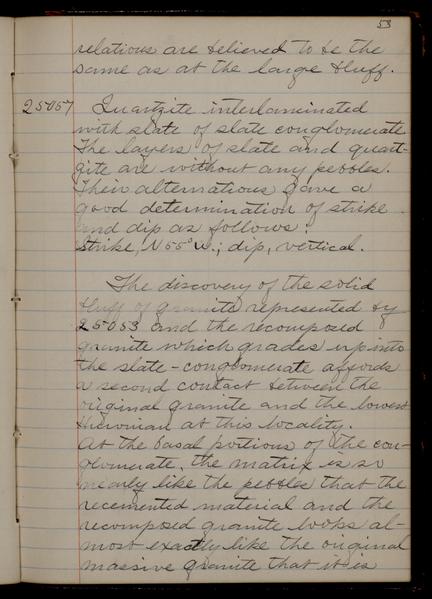 53
relations are believed to be the
same as at the large bluff.
25057 Quartzite interlaminated
with slate of slate conglomerate.
The layers of slate and quart-
zite are without any pebbles.
Their alternations gave a
good determination of strike
and dip as follows:
Strike, N 55° W.; dip, vertical.
The discovery of the solid
bluff of granite represented by
25053 and the recomposed
granite which grades up into
the slate-conglomerate affords
a second contact between the
original granite and the lowest
Huronian at this locality.
At the basal portions of the con-
glomerate, the matrix is so
nearly like the pebbles that the
recemented material and the
recomposed granite looks al-
most exactly like the original
massive granite that it is